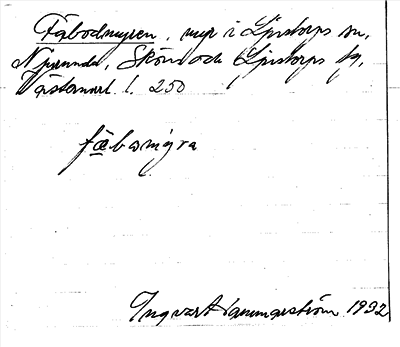 Fäbodmyren, myr i Ljustorps sn,
Njurunda, Sköns och Ljustorps tg,
Västernorrl. l. 250
fæbomýra
Ingvar Hammarström 1932